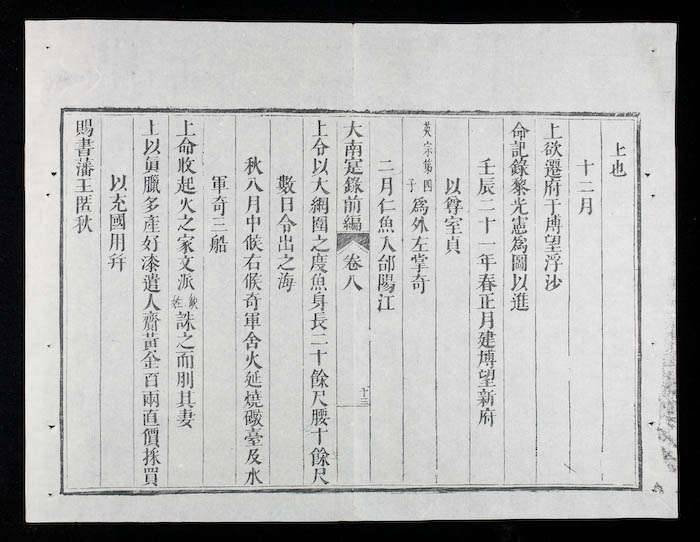 上也
十二月
上欲遷府于愽望浮沙
命記錄黎光憲為圖以進
壬辰二十一年春正月建愽望新府
以尊室貞
英宗第四子為外左掌奇
二月仁魚入郃陽江
大南寔錄前編 卷八 十三
上令以大網圍之度魚身長二十餘尺腰十餘尺
數日令出之海
秋八月中候右候奇軍舍火延燒礟臺及水
軍奇三船
上命收起火之家文派缺姓誅之而刖其妻
上以眞臘多產好漆遣人齎黃金百兩直價採買
以充國用幷
賜書藩王匿秋